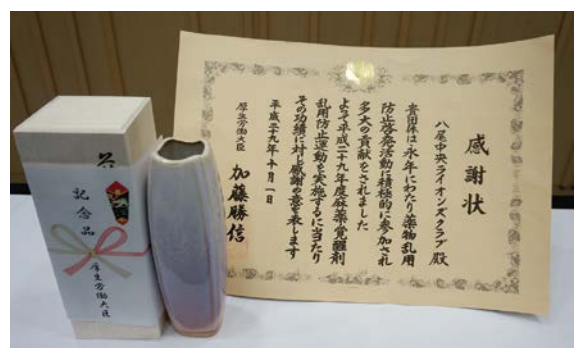 感謝状
八尾中央ライオンズクラブ 殿
貴団体は永年にわたり薬物乱用
防止啓発活動に積極的に参加され
多大の貢献をされました
よって平成二十九年度麻薬覚醒剤
乱用防止運動を実施するに当たり
その功績に対し感謝の意を表します
平成二十九年十月一日
厚生労働大臣 加藤勝信
記念品
厚生労働大臣